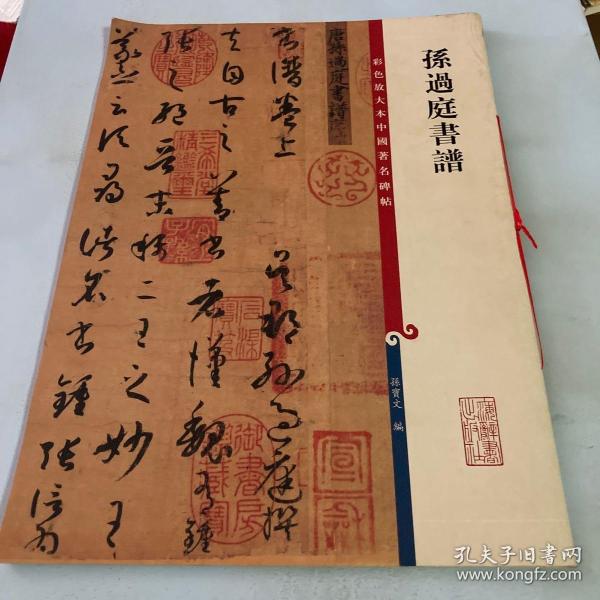 孫過庭書譜
彩色放大本中國著名碑帖
孫寶文 編
唐孫過庭書譜
書譜卷上 吳郡孫過庭撰
夫自古之善書者漢魏有鍾
張之絕晉末稱二王之妙王
羲之云頃尋諸名書鍾張信為
孔夫子旧书网
www.kongfz.com